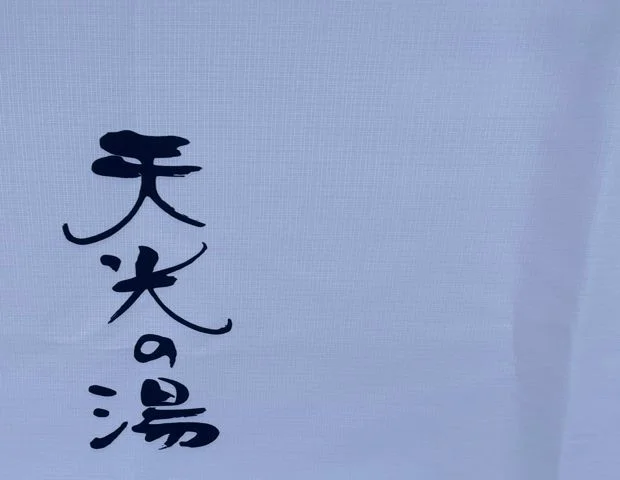 天光の湯